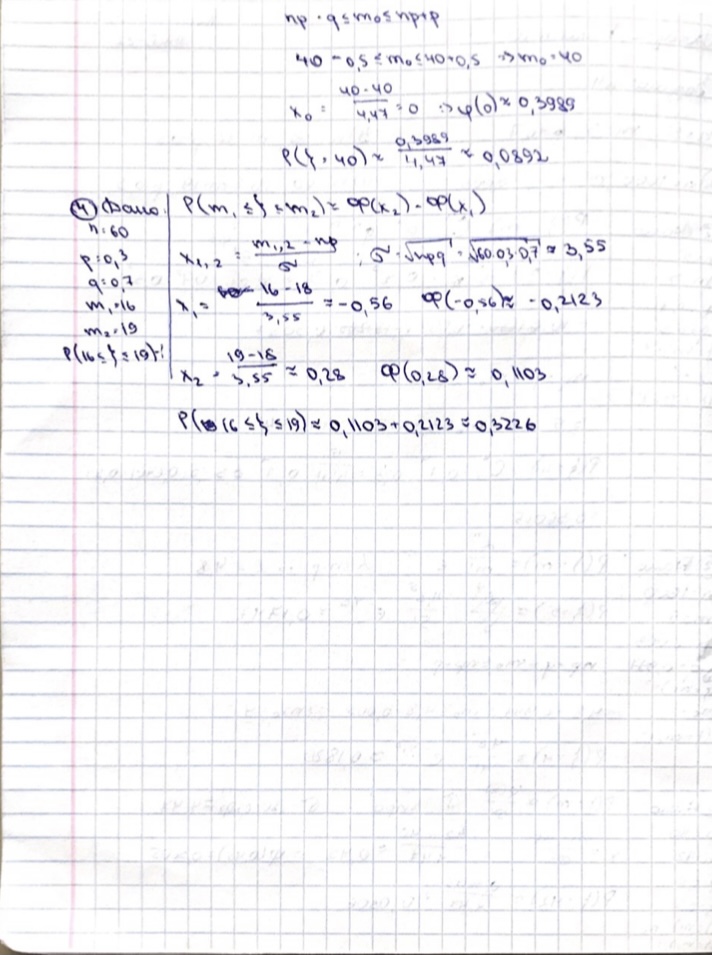 np - q ≤ m₀ ≤ np+p
40 - 0,5 ≤ m₀ ≤ 40+0,5 => m₀ = 40
x₀ = (40-40)/4,47 = 0 => φ(0) ≈ 0,3989
P(ξ = 40) ≈ 0,3989/4,47 ≈ 0,0892
④ Дано:
n=60
p=0,3
q=0,7
m₁=16
m₂=19
P(16≤ξ≤19)-?
P(m₁ ≤ ξ ≤ m₂) ≈ Ф(x₂) - Ф(x₁)
x₁,₂ = (m₁,₂ - np)/σ ; σ = √npq = √60·0,3·0,7 ≈ 3,55
x₁ = (16-18)/3,55 ≈ -0,56 Ф(-0,56) ≈ -0,2123
x₂ = (19-18)/3,55 ≈ 0,28 Ф(0,28) ≈ 0,1103
P(16 ≤ ξ ≤ 19) ≈ 0,1103+0,2123 ≈ 0,3226